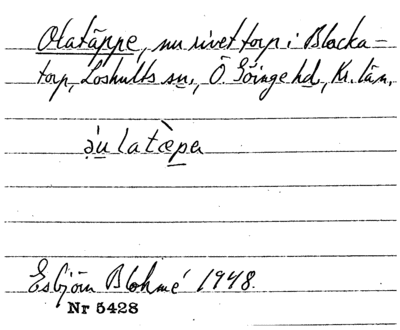 Otatäppe, nu rivet torp i Blocka-
torp, Loshults sn, Ö. Göinge hd, Kr. län.
a̤̍u̠latæ̀pa
Esbjörn Blohmé 1948.
Nr 5428